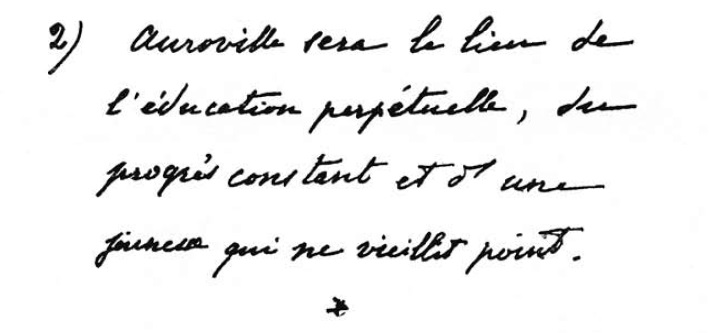 2) Auroville sera le lieu de
l'éducation perpétuelle, du
progrès constant et d'une
jeunesse qui ne vieillit point.
*